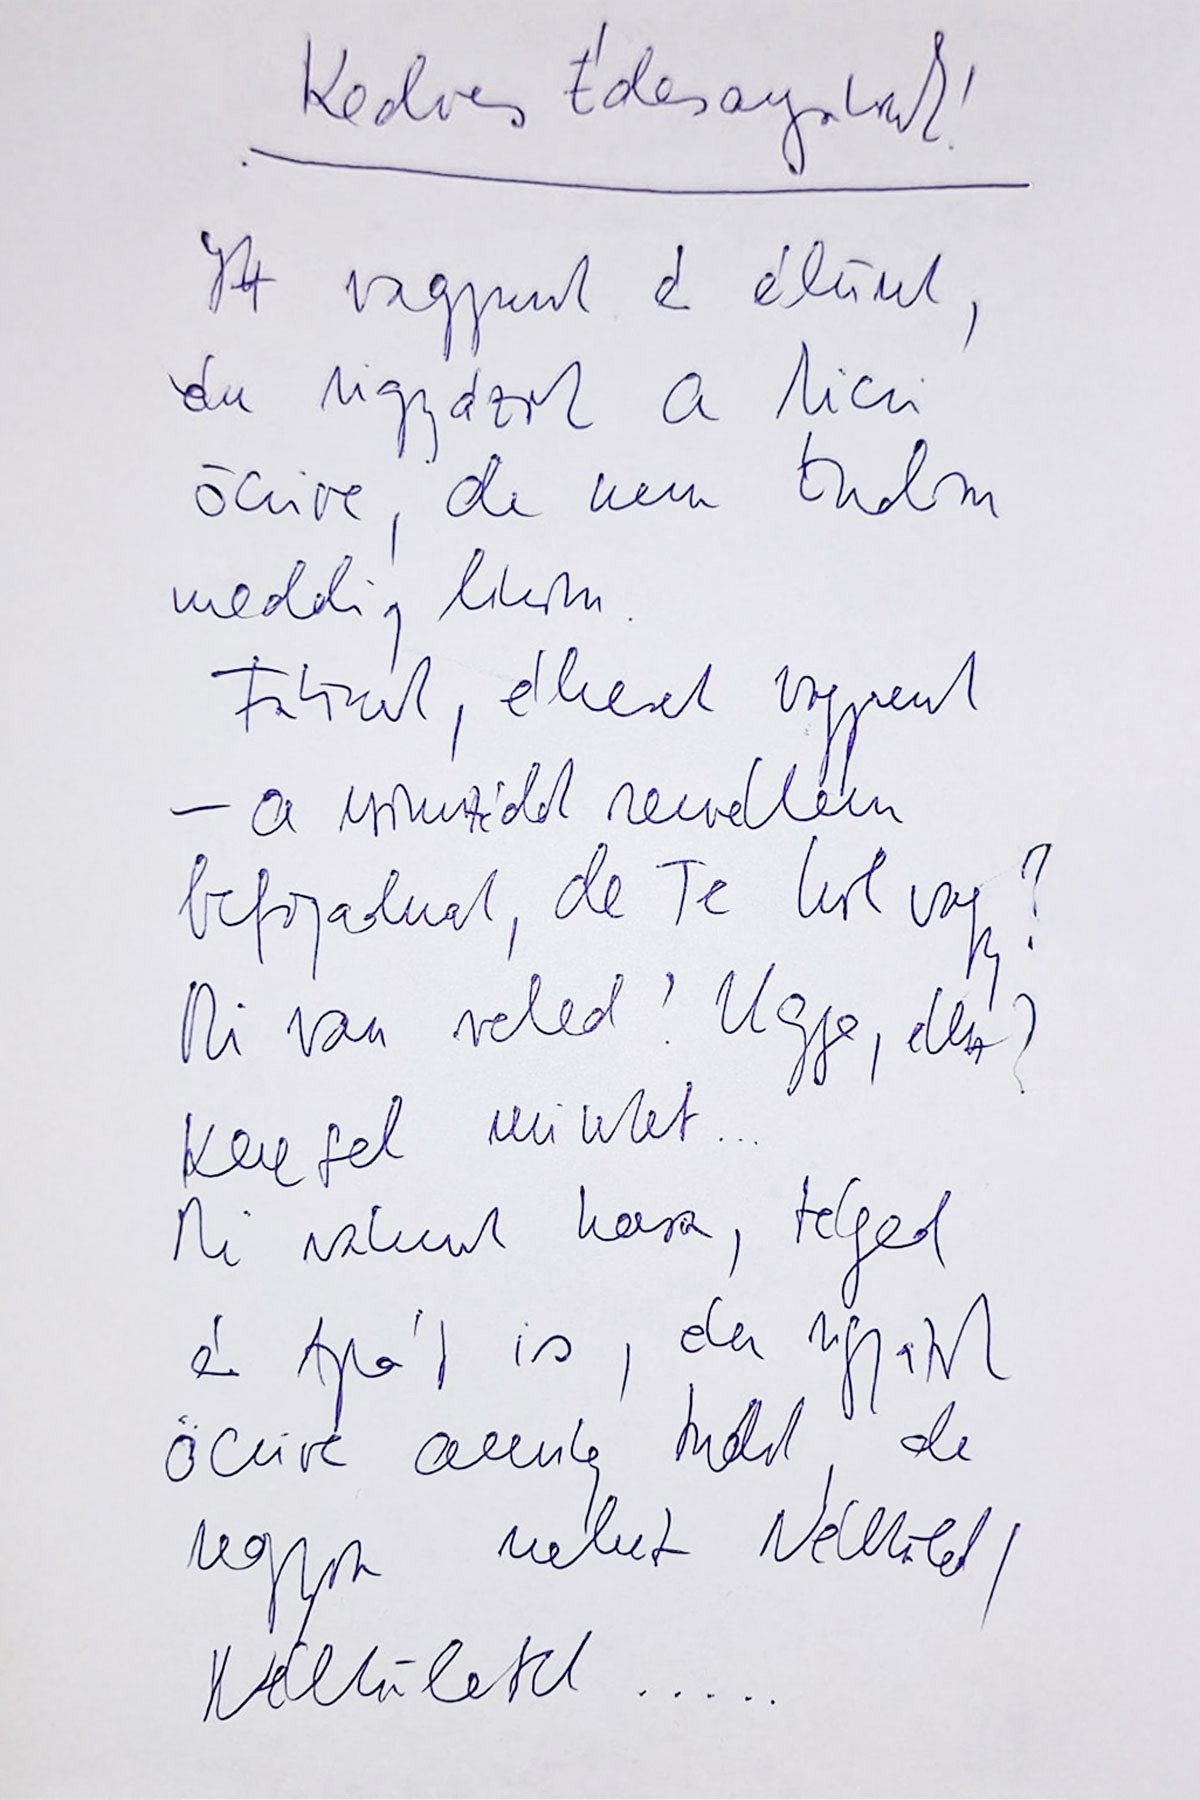 Kedves Édesanyánk!
Itt vagyunk és élünk,
én vigyázok a kicsi
öcsire, de nem tudom
meddig bírom.
Fázunk, éhesek vagyunk
– a
befogadnak, de Te hol vagy?
Mi van veled? Ugye, élsz?
Keresel minket...
Mi várunk haza, téged
és Apát is, én vigyázok
öcsire amíg tudok, de
nagyon nehéz Nélküled,
Nélkületek .....